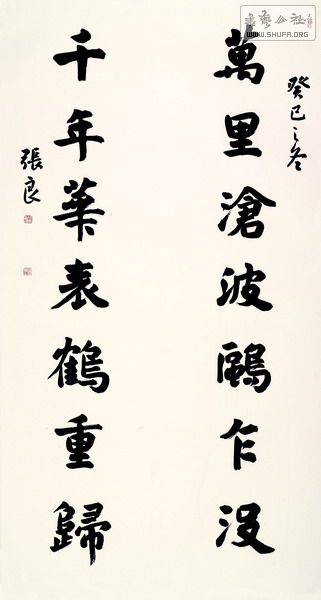 書藝公社
WWW.SHUFA.ORG
癸巳之冬
萬里滄波鷗乍没
千年華表鶴重歸
張良